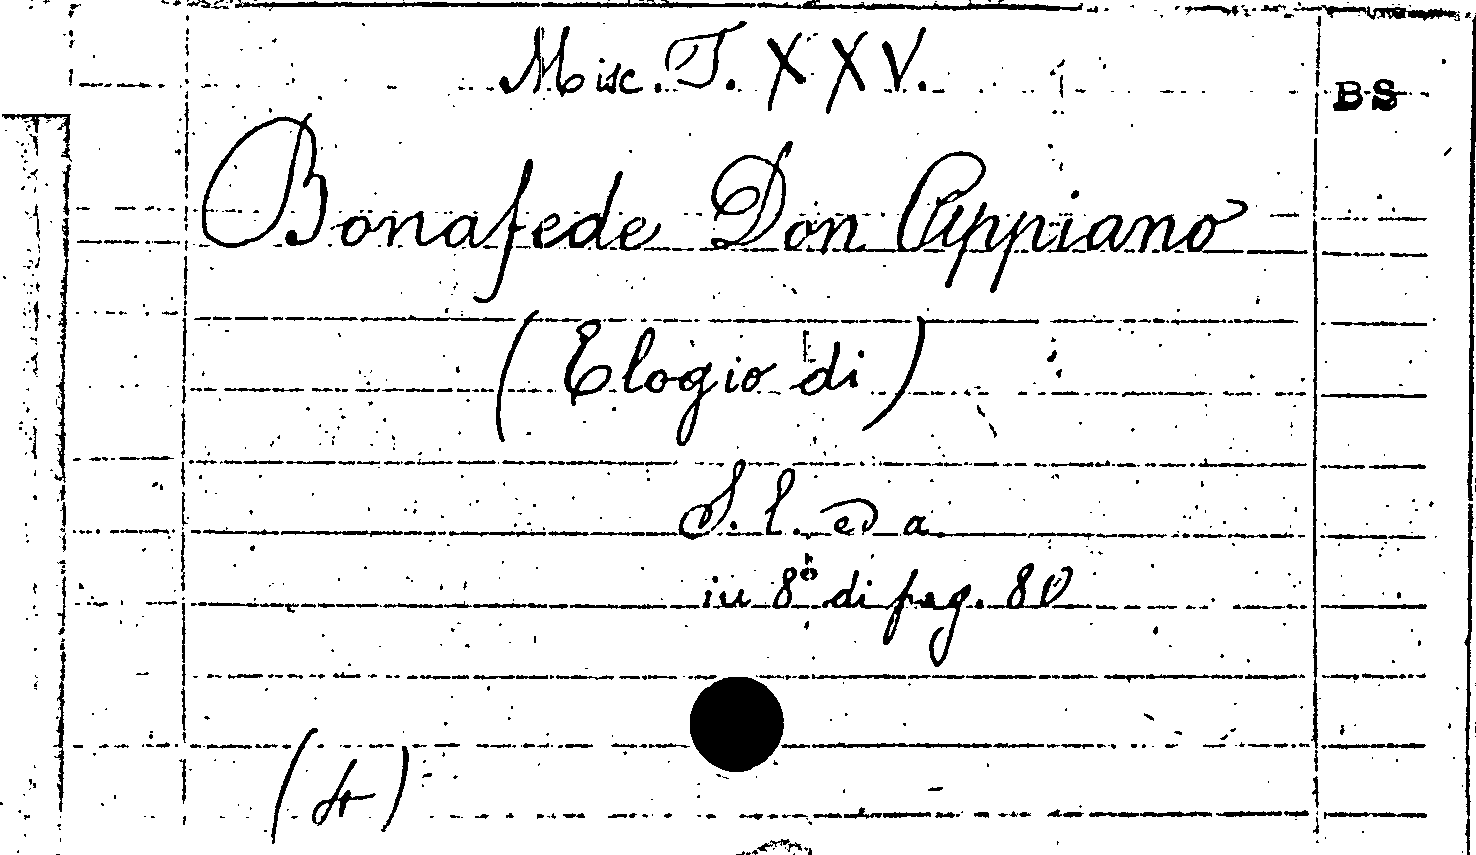 Misc. T. XXV.
BS
Bonafede Don Appiano
(Elogio di)
S. l. ed a.
in 8º di pag. 80